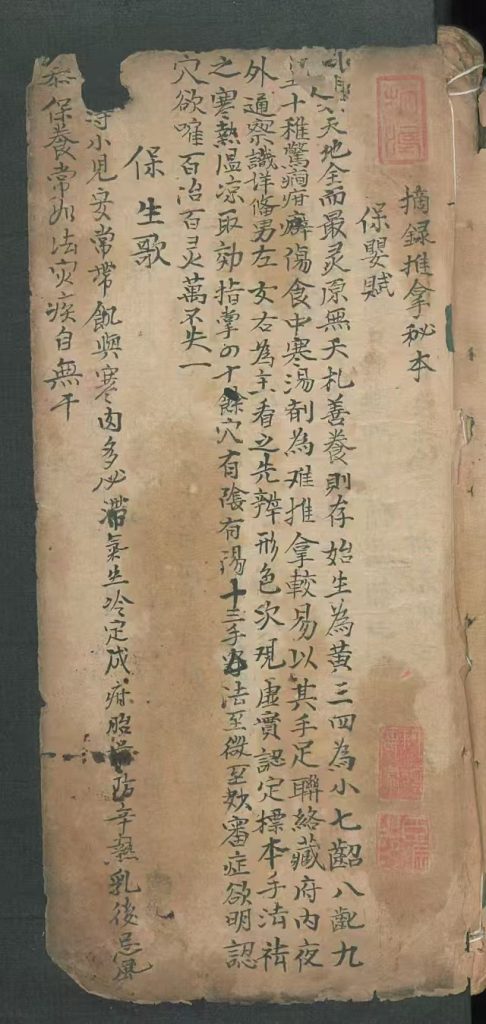 摘録推拿秘本
保嬰賦
天地全而最灵原無夭札善養則存始生為黄三四為小七齠八齔九
十稚驚痾疳癖傷食中寒湯剤為难推拿較易以其手足聯絡藏府内夜
外通察識详偹男左女右為主看之先辨形色次現虚實認定標本手法祛
之寒熱温凉取効指掌四十餘穴有陰有陽十三手法至微至数審症欲明認
穴欲唯百治百灵萬不失一
保生歌
小兒安常帯飢與寒肉多必滯氣生冷定成疳胎前防辛熱乳後忌風
保養常如法灾疾自無干